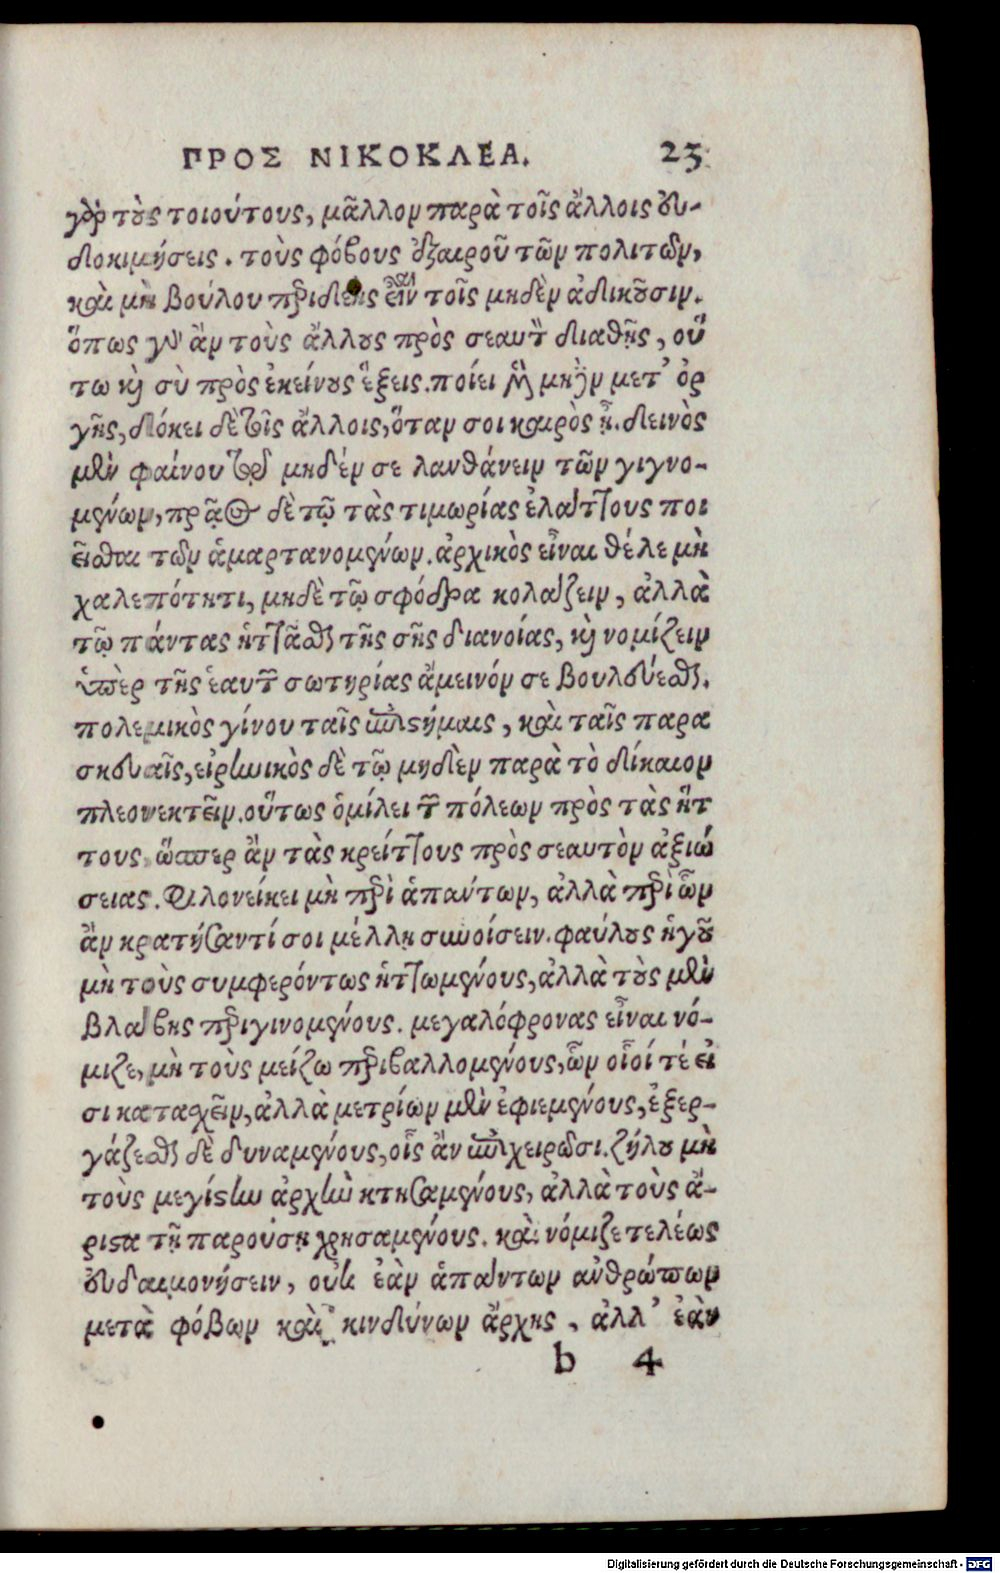 ΠΡΟΣ ΝΙΚΟΚΛΕΑ. 23
γὰρ τοὺς τοιούτους, μᾶλλον παρὰ τοῖς ἄλλοις ευ-
δοκιμήσεις. τοὺς φόβους ἐξαιροῦ τῶν πολιτῶν,
καὶ μὴ βούλου περιδεὴς εἶναι τοῖς μηδὲν ἀδικοῦσιν.
ὅπως γὰρ ἂν τοὺς ἄλλους πρὸς σεαυτὸν διαθῇς, οὕ
τω καὶ σὺ πρὸς ἐκείνους ἕξεις. ποίει μὲν μηδὲν μετ' ὀρ
γῆς, δόκει δὲ τοῖς ἄλλοις, ὅταν σοι καιρὸς ᾖ. δεινὸς
μὲν φαίνου τῷ μηδέν σε λανθάνειν τῶν γιγνο-
μένων, πρᾷος δὲ τῷ τὰς τιμωρίας ἐλάττους ποι
εῖσθαι τῶν ἁμαρτανομένων. ἀρχικὸς εἶναι θέλε μὴ
χαλεπότητι, μηδὲ τῷ σφόδρα κολάζειν, ἀλλὰ
τῷ πάντας ἡττᾶσθαι τῆς σῆς διανοίας, καὶ νομίζειν
ὑπὲρ τῆς ἑαυτῶν σωτηρίας ἄμεινόν σε βουλεύεσθαι.
πολεμικὸς γίνου ταῖς ἐπιστήμαις, καὶ ταῖς παρα
σκευαῖς, εἰρηνικὸς δὲ τῷ μηδὲν παρὰ τὸ δίκαιον
πλεονεκτεῖν. οὕτως ὁμίλει τῶν πόλεων πρὸς τὰς ἥτ
τους, ὥσπερ ἂν τὰς κρείττους πρὸς σεαυτὸν ἀξιώ
σειας. Φιλονείκει μὴ περὶ ἁπάντων, ἀλλὰ περὶ ὧν
ἂν κρατήσαντί σοι μέλλῃ συνοίσειν. φαύλους ἡγοῦ
μὴ τοὺς συμφερόντως ἡττωμένους, ἀλλὰ τοὺς μὲν
βλάβης περιγινομένους. μεγαλόφρονας εἶναι νό-
μιζε, μὴ τοὺς μείζω περιβαλλομένους, ὧν οἷοί τέ εἰ
σι κατασχεῖν, ἀλλὰ μετρίων μὲν ἐφιεμένους, ἐξερ-
γάζεσθαι δὲ δυναμένους, οἷς ἂν ἐπιχειρῶσι. ζήλου μὴ
τοὺς μεγίστην ἀρχὴν κτησαμένους, ἀλλὰ τοὺς ἄ-
ριστα τῇ παρούσῃ χρησαμένους. καὶ νόμιζε τελέως
ευδαιμονήσειν, οὐκ ἐὰν ἁπάντων ἀνθρώπων
μετὰ φόβων καὶ κινδύνων ἄρχῃς, ἀλλ' ἐὰν
b 4
Digitalisierung gefördert durch die Deutsche Forschungsgemeinschaft - DFG